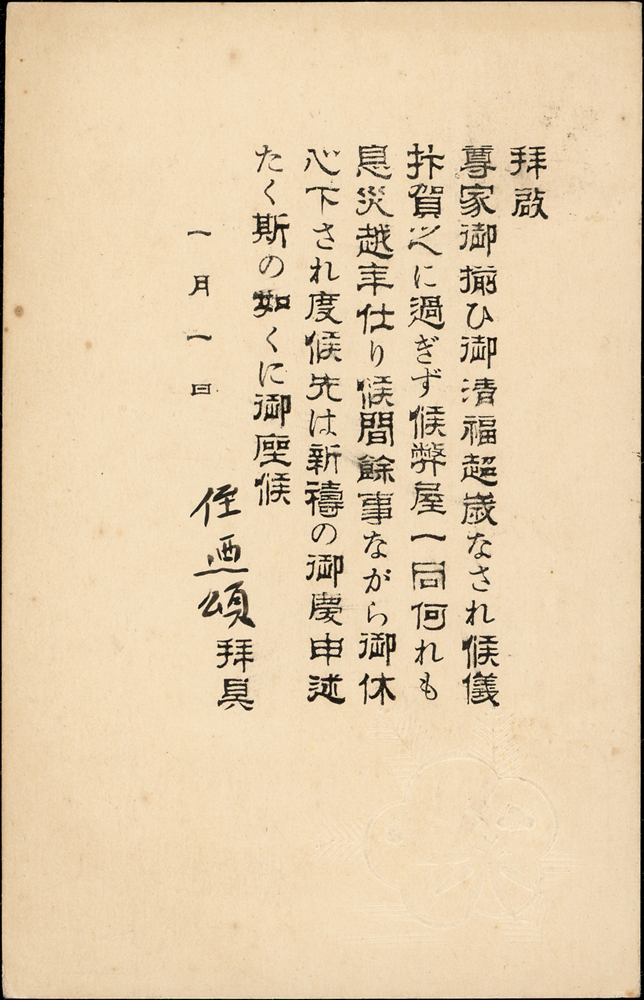 拝啟
尊家御揃ひ御清福超歳なされ候儀
抃賀之に過ぎず候弊屋一同何れも
息災越年仕り候間餘事ながら御休
心下され度候先は新禱の御慶申述
たく斯の如くに御座候
一月一日
侄 頌
拝具